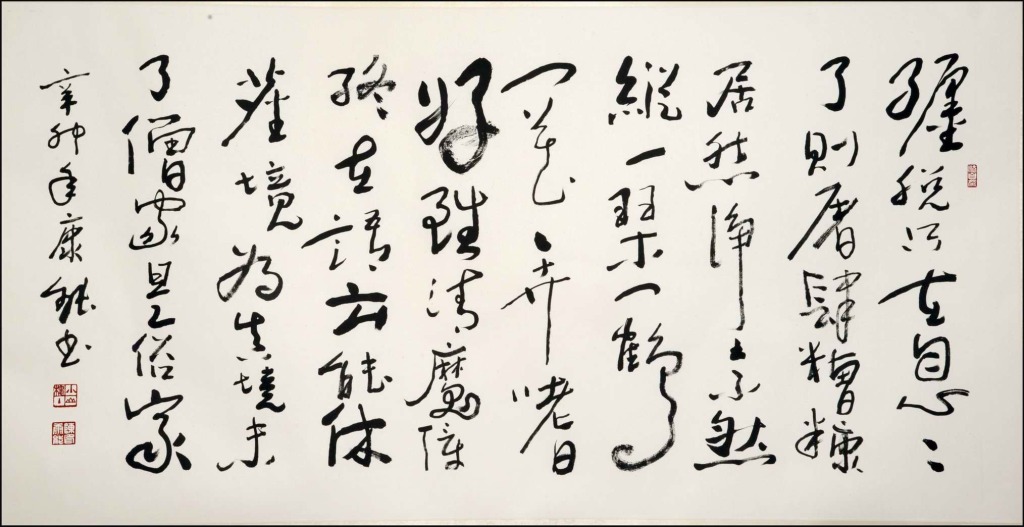 纏脱只在自心〻
了則屠肆糟糠
居然淨土不然
縱一琴一鶴
一花一卉嗜
好雖清魔障
終在語云能休
塵境為真境未
了僧家是俗家
辛卯年康书